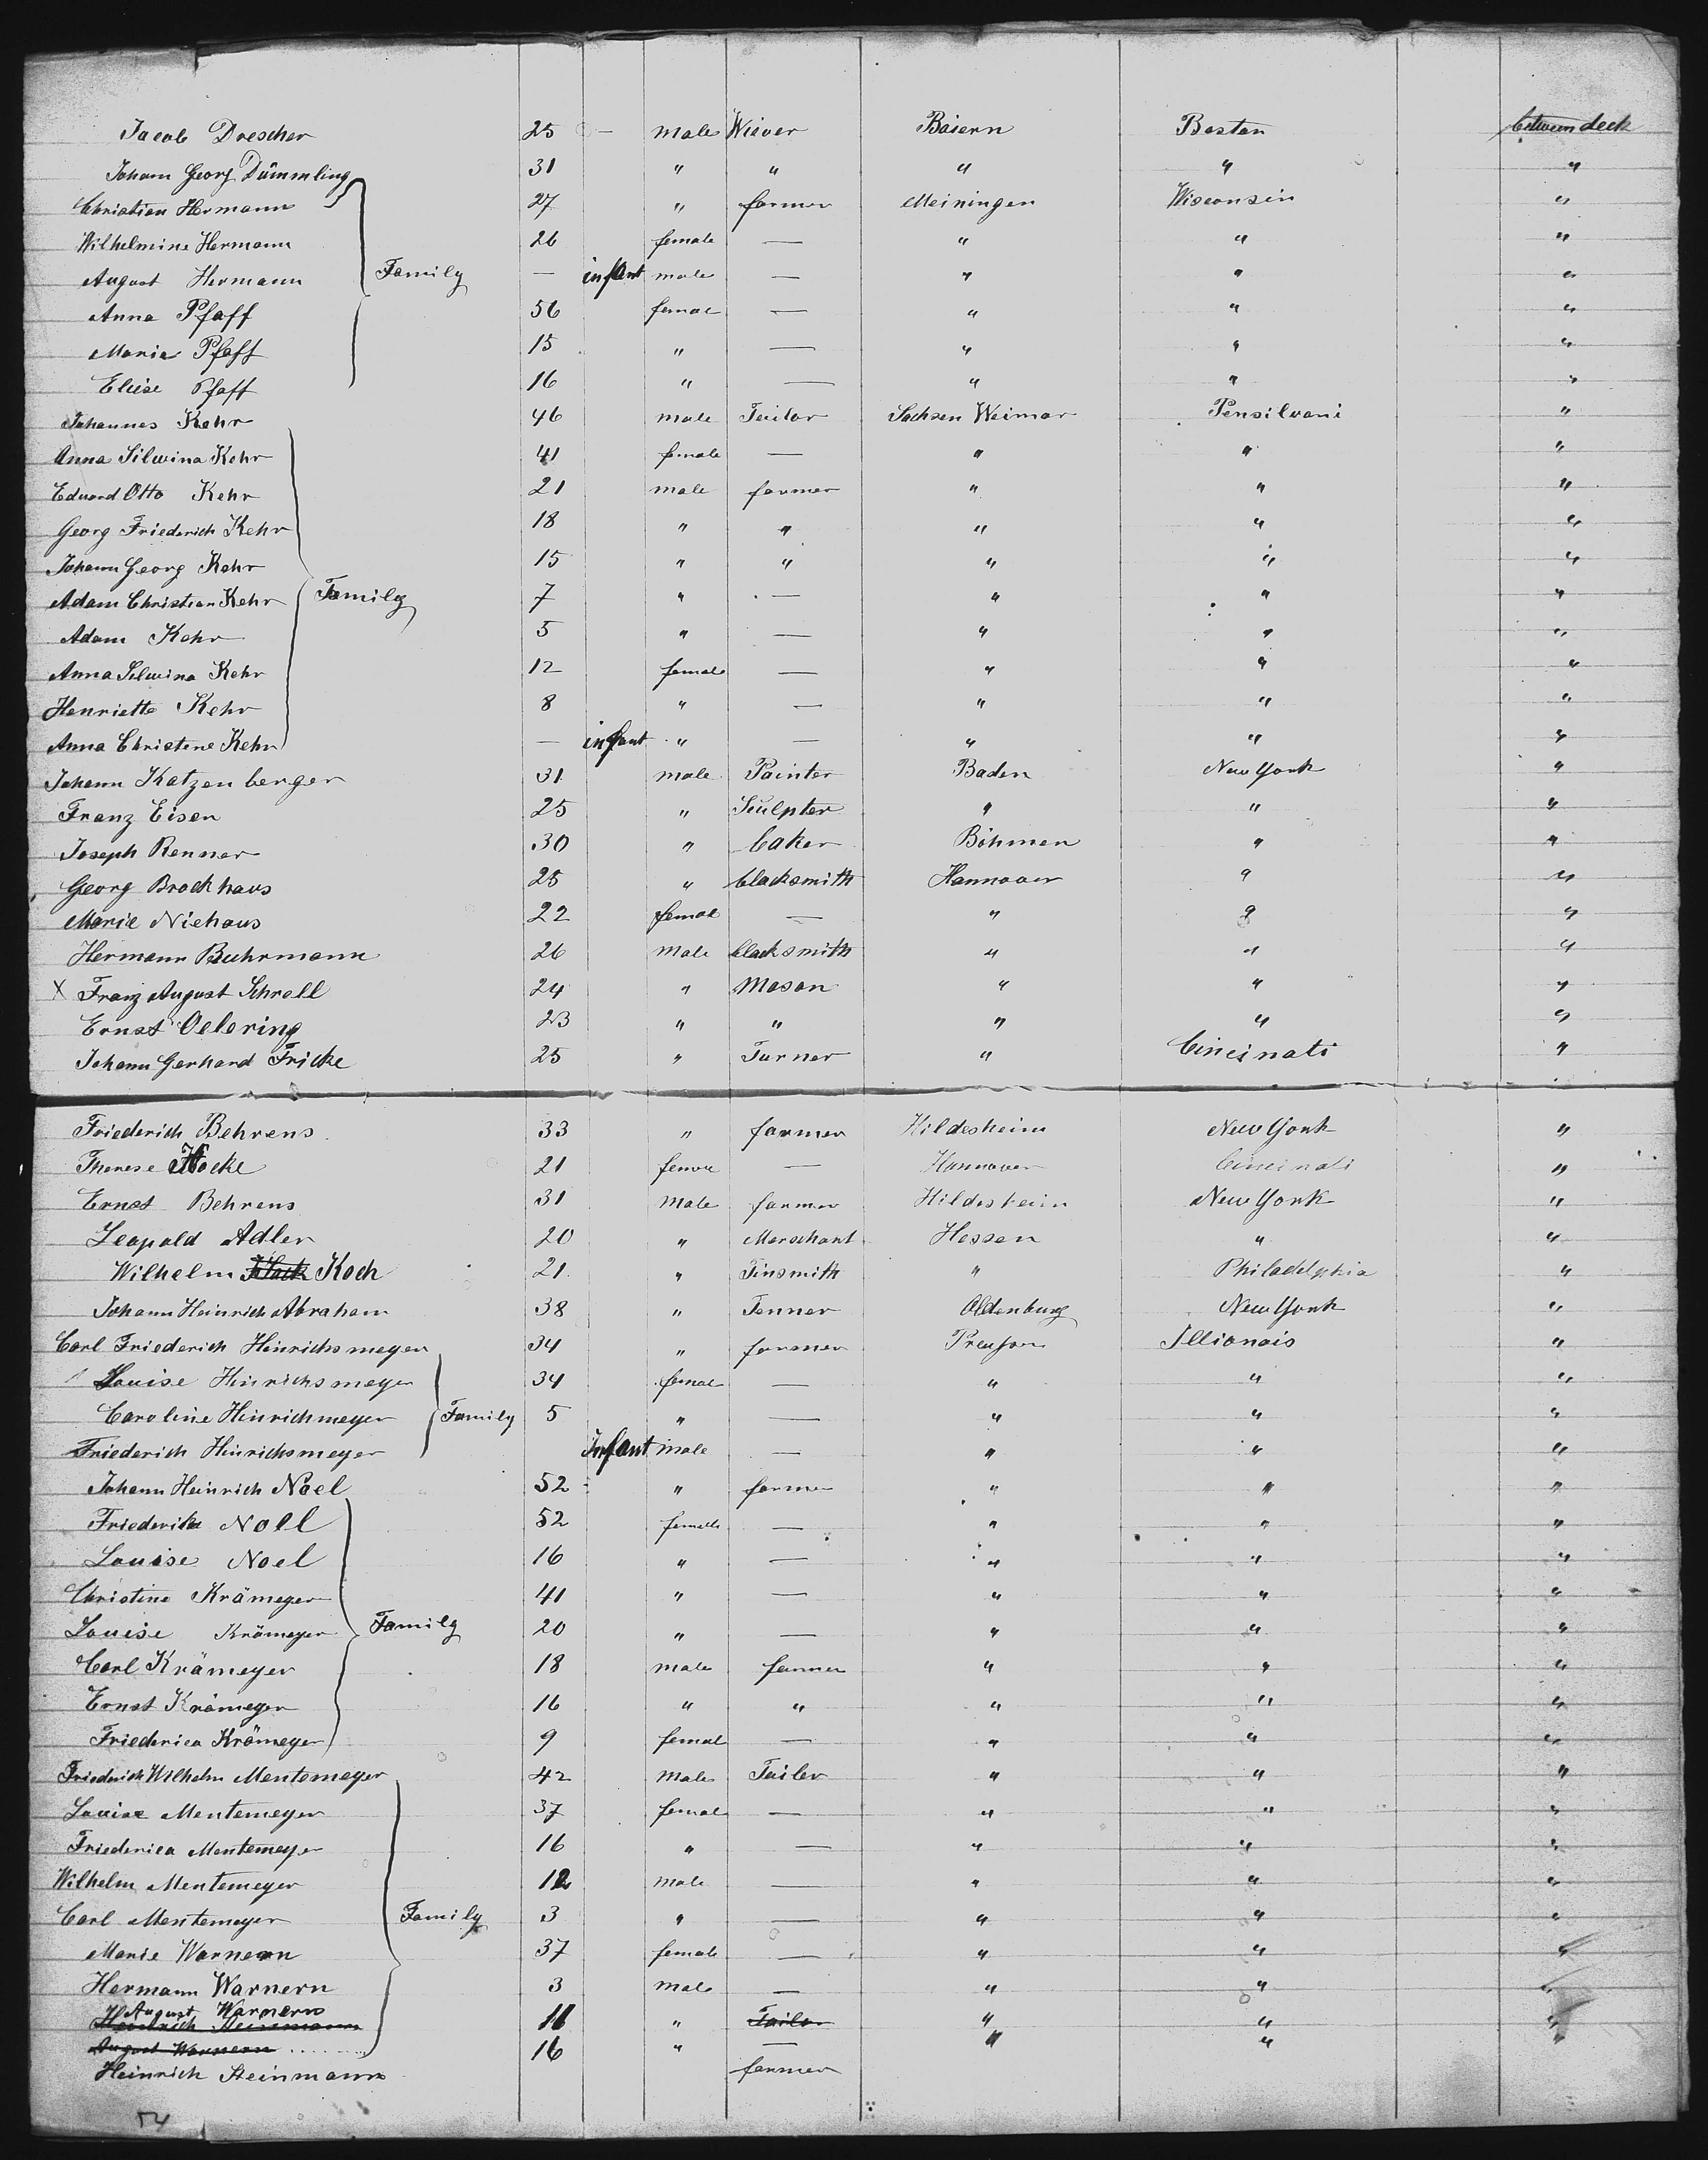 Jacob Drescher 25 — male Wiever Baiern Boston between deck
Johann Georg Dümmling 31 " " " " "
Christian Hermann 27 " farmer Meiningen Wisconsin "
Wilhelmine Hermann 26 female — " " "
August Hermann Family — infant male — " " "
Anna Pfaff 56 femal — " " "
Marie Pfaff 15 " — " " "
Eliese Pfaff 16 " — " " "
Johannes Kehr 46 male Tailor Sachsen Weimar Pensilvani "
Anna Silwina Kehr 41 female — " " "
Eduard Otto Kehr 21 male farmer " " "
Georg Friederich Kehr 18 " " " " "
Johann Georg Kehr 15 " " " " "
Adam Christian Kehr Family 7 " — " " "
Adam Kehr 5 " — " " "
Anna Silwina Kehr 12 female — " " "
Henriette Kehr 8 " — " " "
Anna Christine Kehr — infant " — " " "
Johann Katzenberger 31 male Painter Baden New York "
Franz Eisen 25 " Sculpter " " "
Joseph Renner 30 " baker Böhmen " "
Georg Brockhaus 25 " blacksmith Hannover " "
Marie Niehaus 22 femal — " " "
Hermann Buhrmann 26 male blacksmith " " "
X Franz August Schrell 24 " Mason " " "
Ernst Oelering 23 " " " " "
Johann Gerhard Fricke 25 " Turner " Cincinati "
Friederich Behrens 33 " farmer Hildesheim New York "
Therese Hocke 21 female — Hannover Cincinati "
Ernst Behrens 31 male farmer Hildesheim New York "
Leopold Adler 20 " Merschant Hessen " "
Wilhelm Koch 21 " Tinsmith " Philadelphia "
Johann Heinrich Abraham 38 " Tenner Oldenburg New York "
Carl Friederich Hinrichsmeyer 34 " farmer Preussen Illionois "
Louise Hinrichsmeyer 34 femal — " " "
Caroline Hinrichmeyer Family 5 " — " " "
Friederich Hinrichsmeyer Infant male — " " "
Johann Heinrich Noel 52 " farmer " " "
Friederike Noll 52 female — " " "
Louise Noel 16 " — " " "
Christine Krämeyer 41 " — " " "
Louise Krämeyer Family 20 " — " " "
Carl Krämeyer 18 male farmer " " "
Ernst Krämeyer 16 " " " " "
Friederica Krämeyer 9 femal — " " "
Friederich Wilhelm Mentemeyer 42 male Tailer " " "
Louise Mentemeyer 37 femal — " " "
Friederica Mentemeyer 16 " — " " "
Wilhelm Mentemeyer 12 male — " " "
Carl Mentemeyer Family 3 " — " " "
Marie Warnern 37 female — " " "
Hermann Warnern 3 male — " " "
August Warnern
Heinrich Steinmann 11 " Tailor " " "
August Warnern 16 " — " " "
Heinrich Steinmann farmer
54